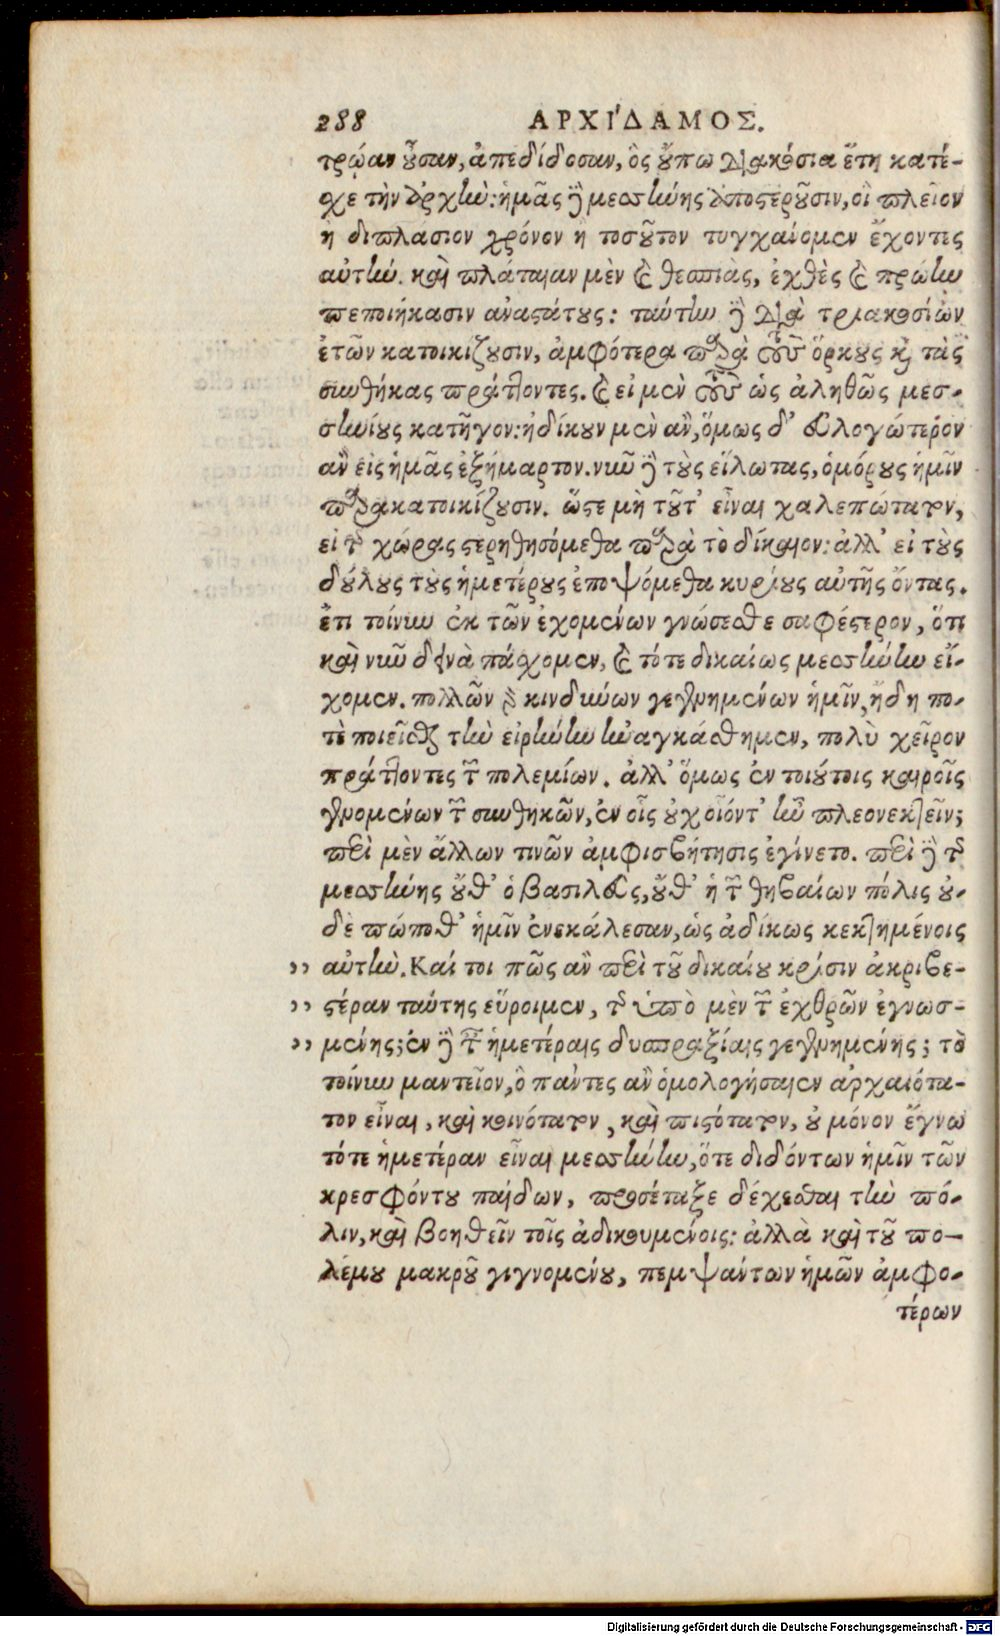 288 ΑΡΧΙΔΑΜΟΣ.
τρῴαν οὖσαν, ἀπεδίδοσαν, ὃς οὔπω διακόσια ἔτη κατέ-
σχε τὴν ἀρχὴν: ἡμᾶς δὲ μεσσήνης ἀποστεροῦσιν, οἳ πλεῖον
ἢ διπλάσιον χρόνον ἢ τοσοῦτον τυγχάνομεν ἔχοντες
αὐτήν. καὶ πλάταιαν μὲν καὶ θεσπιὰς, ἐχθὲς καὶ πρώην
πεποιήκασιν ἀναστάτους: ταύτην δὲ διὰ τριακοσίων
ἐτῶν κατοικίζουσιν, ἀμφότερα παρὰ τοὺς ὅρκους καὶ τὰς
συνθήκας πράττοντες. καὶ εἰ μὲν τοὺς ὡς ἀληθῶς μεσ-
σηνίους κατῆγον: ἠδίκουν μὲν ἂν, ὅμως δ' εὐλογώτερόν
ἂν εἰς ἡμᾶς ἐξήμαρτον. νῦν δὲ τοὺς εἵλωτας, ὁμόρους ἡμῖν
παρακατοικίζουσιν. ὥστε μὴ τοῦτ' εἶναι χαλεπώτατον,
εἰ τῆς χώρας στερηθησόμεθα παρὰ τὸ δίκαιον: ἀλλ' εἰ τοὺς
δούλους τοὺς ἡμετέρους ἐποψόμεθα κυρίους αὐτῆς ὄντας.
ἔτι τοίνυν ἐκ τῶν ἐχομένων γνώσεσθε σαφέστερον, ὅτι
καὶ νῦν δεινὰ πάσχομεν, καὶ τότε δικαίως μεσσήνην εἴ-
χομεν. πολλῶν γὰρ κινδύνων γεγενημένων ἡμῖν, ἤδη πο-
τὲ ποιεῖσθαι τὴν εἰρήνην ἠναγκάσθημεν, πολὺ χεῖρον
πράττοντες τῶν πολεμίων. ἀλλ' ὅμως ἐν τοιούτοις καιροῖς
γενομένων τῶν συνθηκῶν, ἐν οἷς οὐχ οἷόντ' ἦν πλεονεκτεῖν;
περὶ μὲν ἄλλων τινῶν ἀμφισβήτησις ἐγίνετο. περὶ δὲ τῆς
μεσσήνης οὔθ' ὁ βασιλεὺς, οὔθ' ἡ τῶν θηβαίων πόλις οὐ-
δὲ πώποθ' ἡμῖν ἐνεκάλεσαν, ὡς ἀδίκως κεκτημένοις
›› αὐτὴν. Καί τοι πῶς ἂν περὶ τοῦ δικαίου κρίσιν ἀκριβε-
›› στέραν ταύτης εὕροιμεν, τῆς ὑπὸ μὲν τῶν ἐχθρῶν ἐγνωσ-
›› μένης; ἐν δὲ ταῖς ἡμετέραις δυσπραξίαις γεγενημένης; τὸ
τοίνυν μαντεῖον, ὃ πάντες ἂν ὁμολογήσαιεν ἀρχαιότα-
τον εἶναι, καὶ κοινότατον, καὶ πιστότατον, οὐ μόνον ἔγνω
τότε ἡμετέραν εἶναι μεσσήνην, ὅτε διδόντων ἡμῖν τῶν
κρεσφόντου παίδων, προσέταξε δέχεσθαι τὴν πό-
λιν, καὶ βοηθεῖν τοῖς ἀδικουμένοις: ἀλλὰ καὶ τοῦ πο-
λέμου μακροῦ γιγνομένου, πεμψάντων ἡμῶν ἀμφο-
τέρων
Digitalisierung gefördert durch die Deutsche Forschungsgemeinschaft - DFG